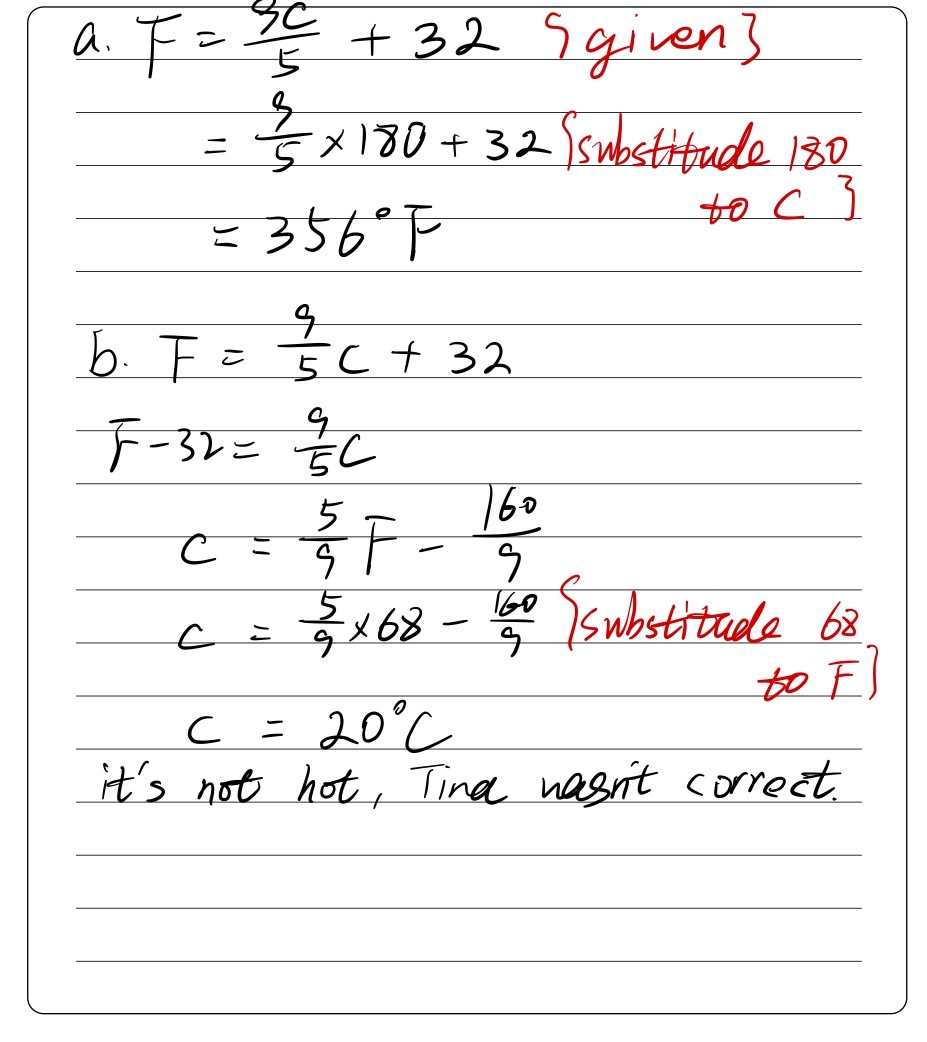 a. F = 9C/5 + 32 {given}
= 9/5 × 180 + 32 {substitude 180
to C }
= 356°F
b. F = 9/5 C + 32
F - 32 = 9/5 C
C = 5/9 F - 160/9
C = 5/9 × 68 - 160/9 {substitude 68
to F}
C = 20°C
it's not hot, Tina wasn't correct.